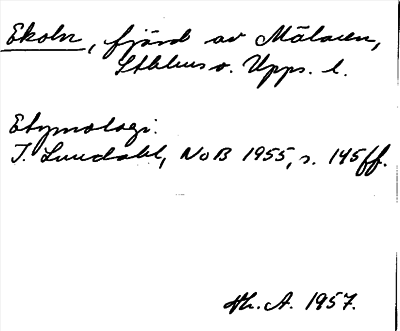 Ekoln, fjärd av Mälaren,
Sthlms o. Upps. l.
Etymologi:
I. Lundahl, NoB 1955, s. 145ff.
Th. A. 1957.